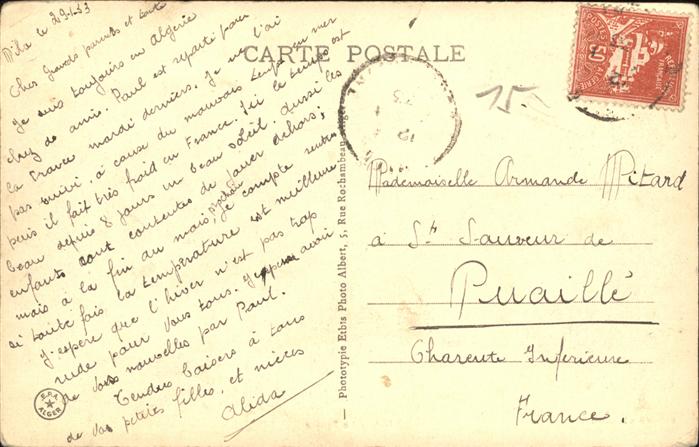 Mila le 29.1.33
Chers Grands parents et tante
Je suis toujours en Algérie
chez des amis. Paul est reparti pour
la France mardi dernier. Je ne l'ai
pas suivi, à cause du mauvais temps en mer
puis il fait très froid en France. Ici le temps est
beau depuis 8 jours un beau soleil. Aussi les
enfants sont contentes de jouer dehors;
mais à la fin du mois prochain je compte rentrer
si toute fois la température est meilleure
J'espère que l'hiver n'est pas trop
rude pour vous tous. J'espère avoir
de vos nouvelles par Paul.
Tendres baisers à tous
de vos petites filles et nièces
Alida
E.P.A ALGER
CARTE POSTALE
— Phototypie Etbis Photo Albert, 5, Rue Rochambeau, Alger
POSTES
ALGERIE
50
15
Mademoiselle Armande Mitard
à St Sauveur de
Nuaillé
Charente Inférieure
France.